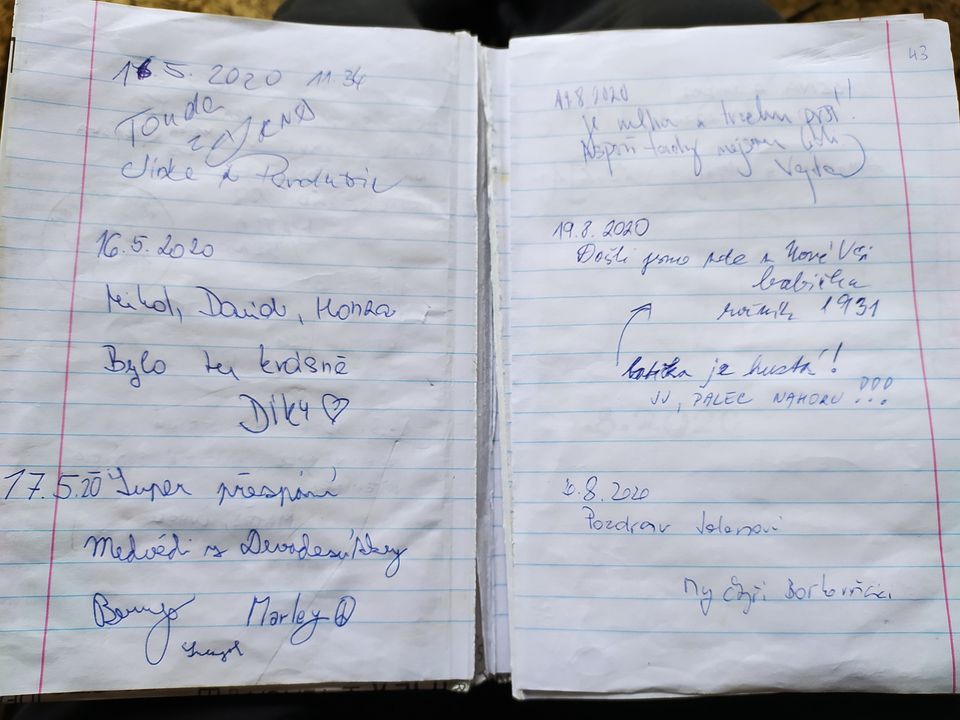 16.5.2020 11:34
Tonda
z
Jirka z Pardubic
16.5.2020
Nikol, David, Honza
Bylo tu krásně
Díky ♡
17.5.20 Super přespání
Medvědi z Devadesátky
Benny Marley
43
19.8.2020
je mlha a trochu prší!
Aspoň tady nejsou lidi
Vojta
19.8.2020
Došli jsme sde z Nové Vsi
babička
ročník 1931
babička je hustá!
JJ, PALEC NAHORU !!!
.8.2020
Pozdrav
My čtyři